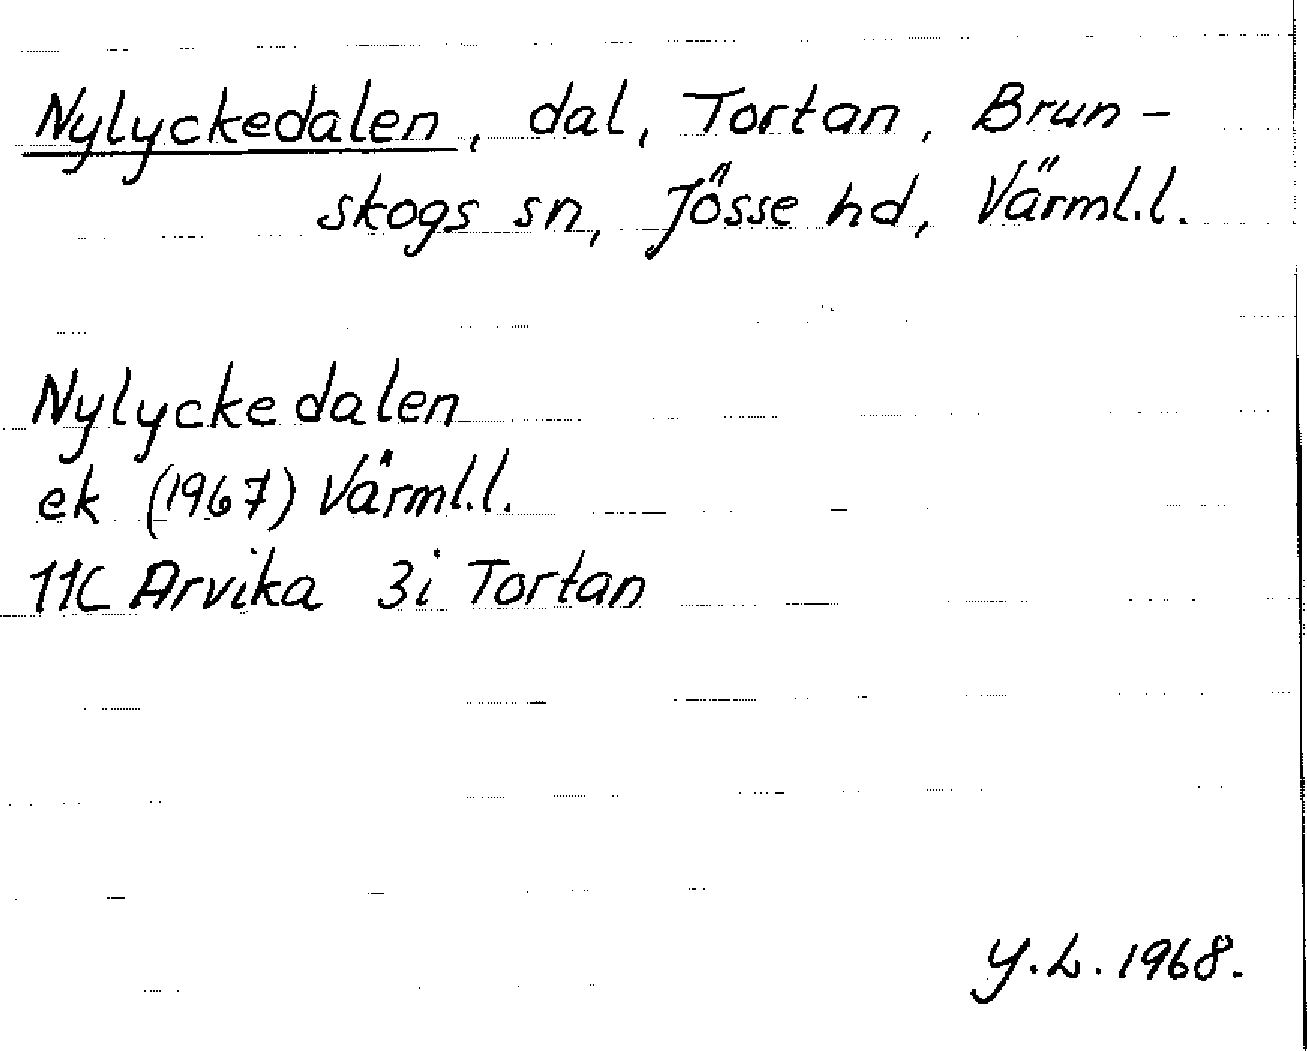 Nylyckedalen, dal, Tortan, Brun-
skogs sn, Jösse hd, Värml.l.
Nylyckedalen
ek (1967) Värml.l.
11C Arvika 3i Tortan
Y.L. 1968.